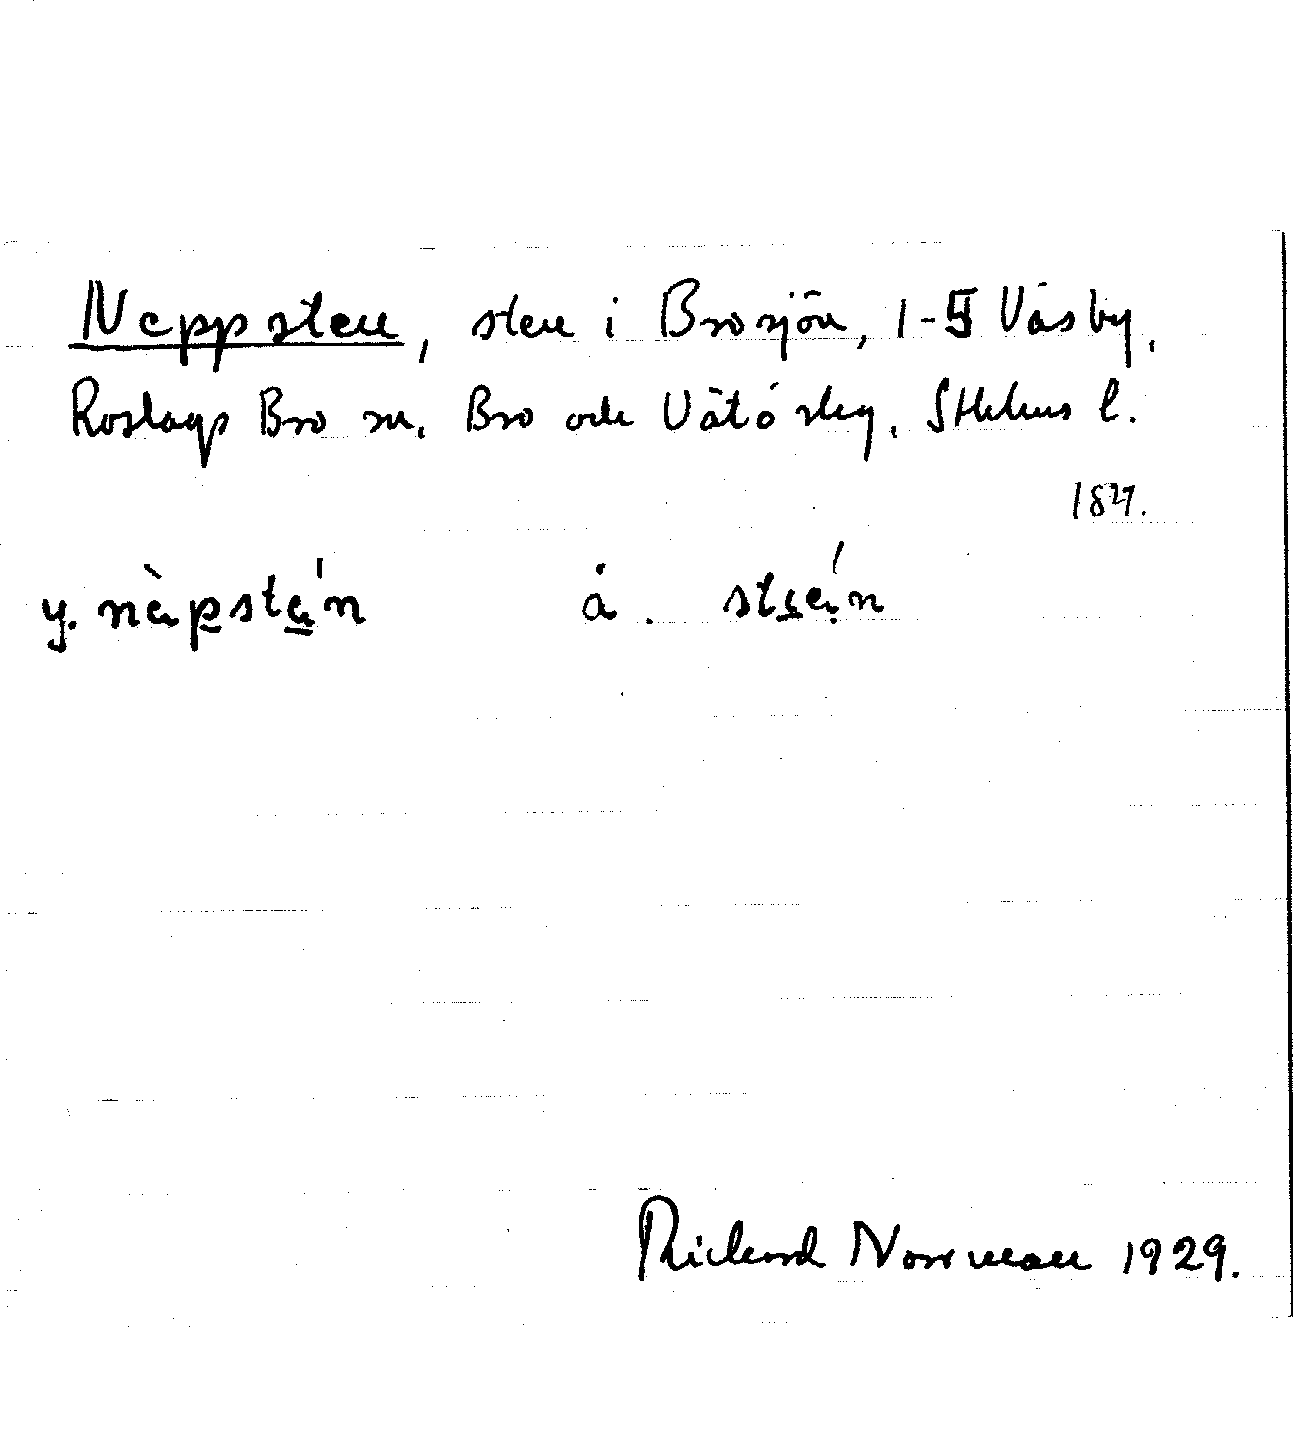 Neppsten, sten i Brosjön, 1-5 Väsby,
Roslags Bro sn. Bro och Vätö skg, Sthlms l.
y. nä̀pstẹ́n å. stẹẹ́n
Rickard Norrman 1929.